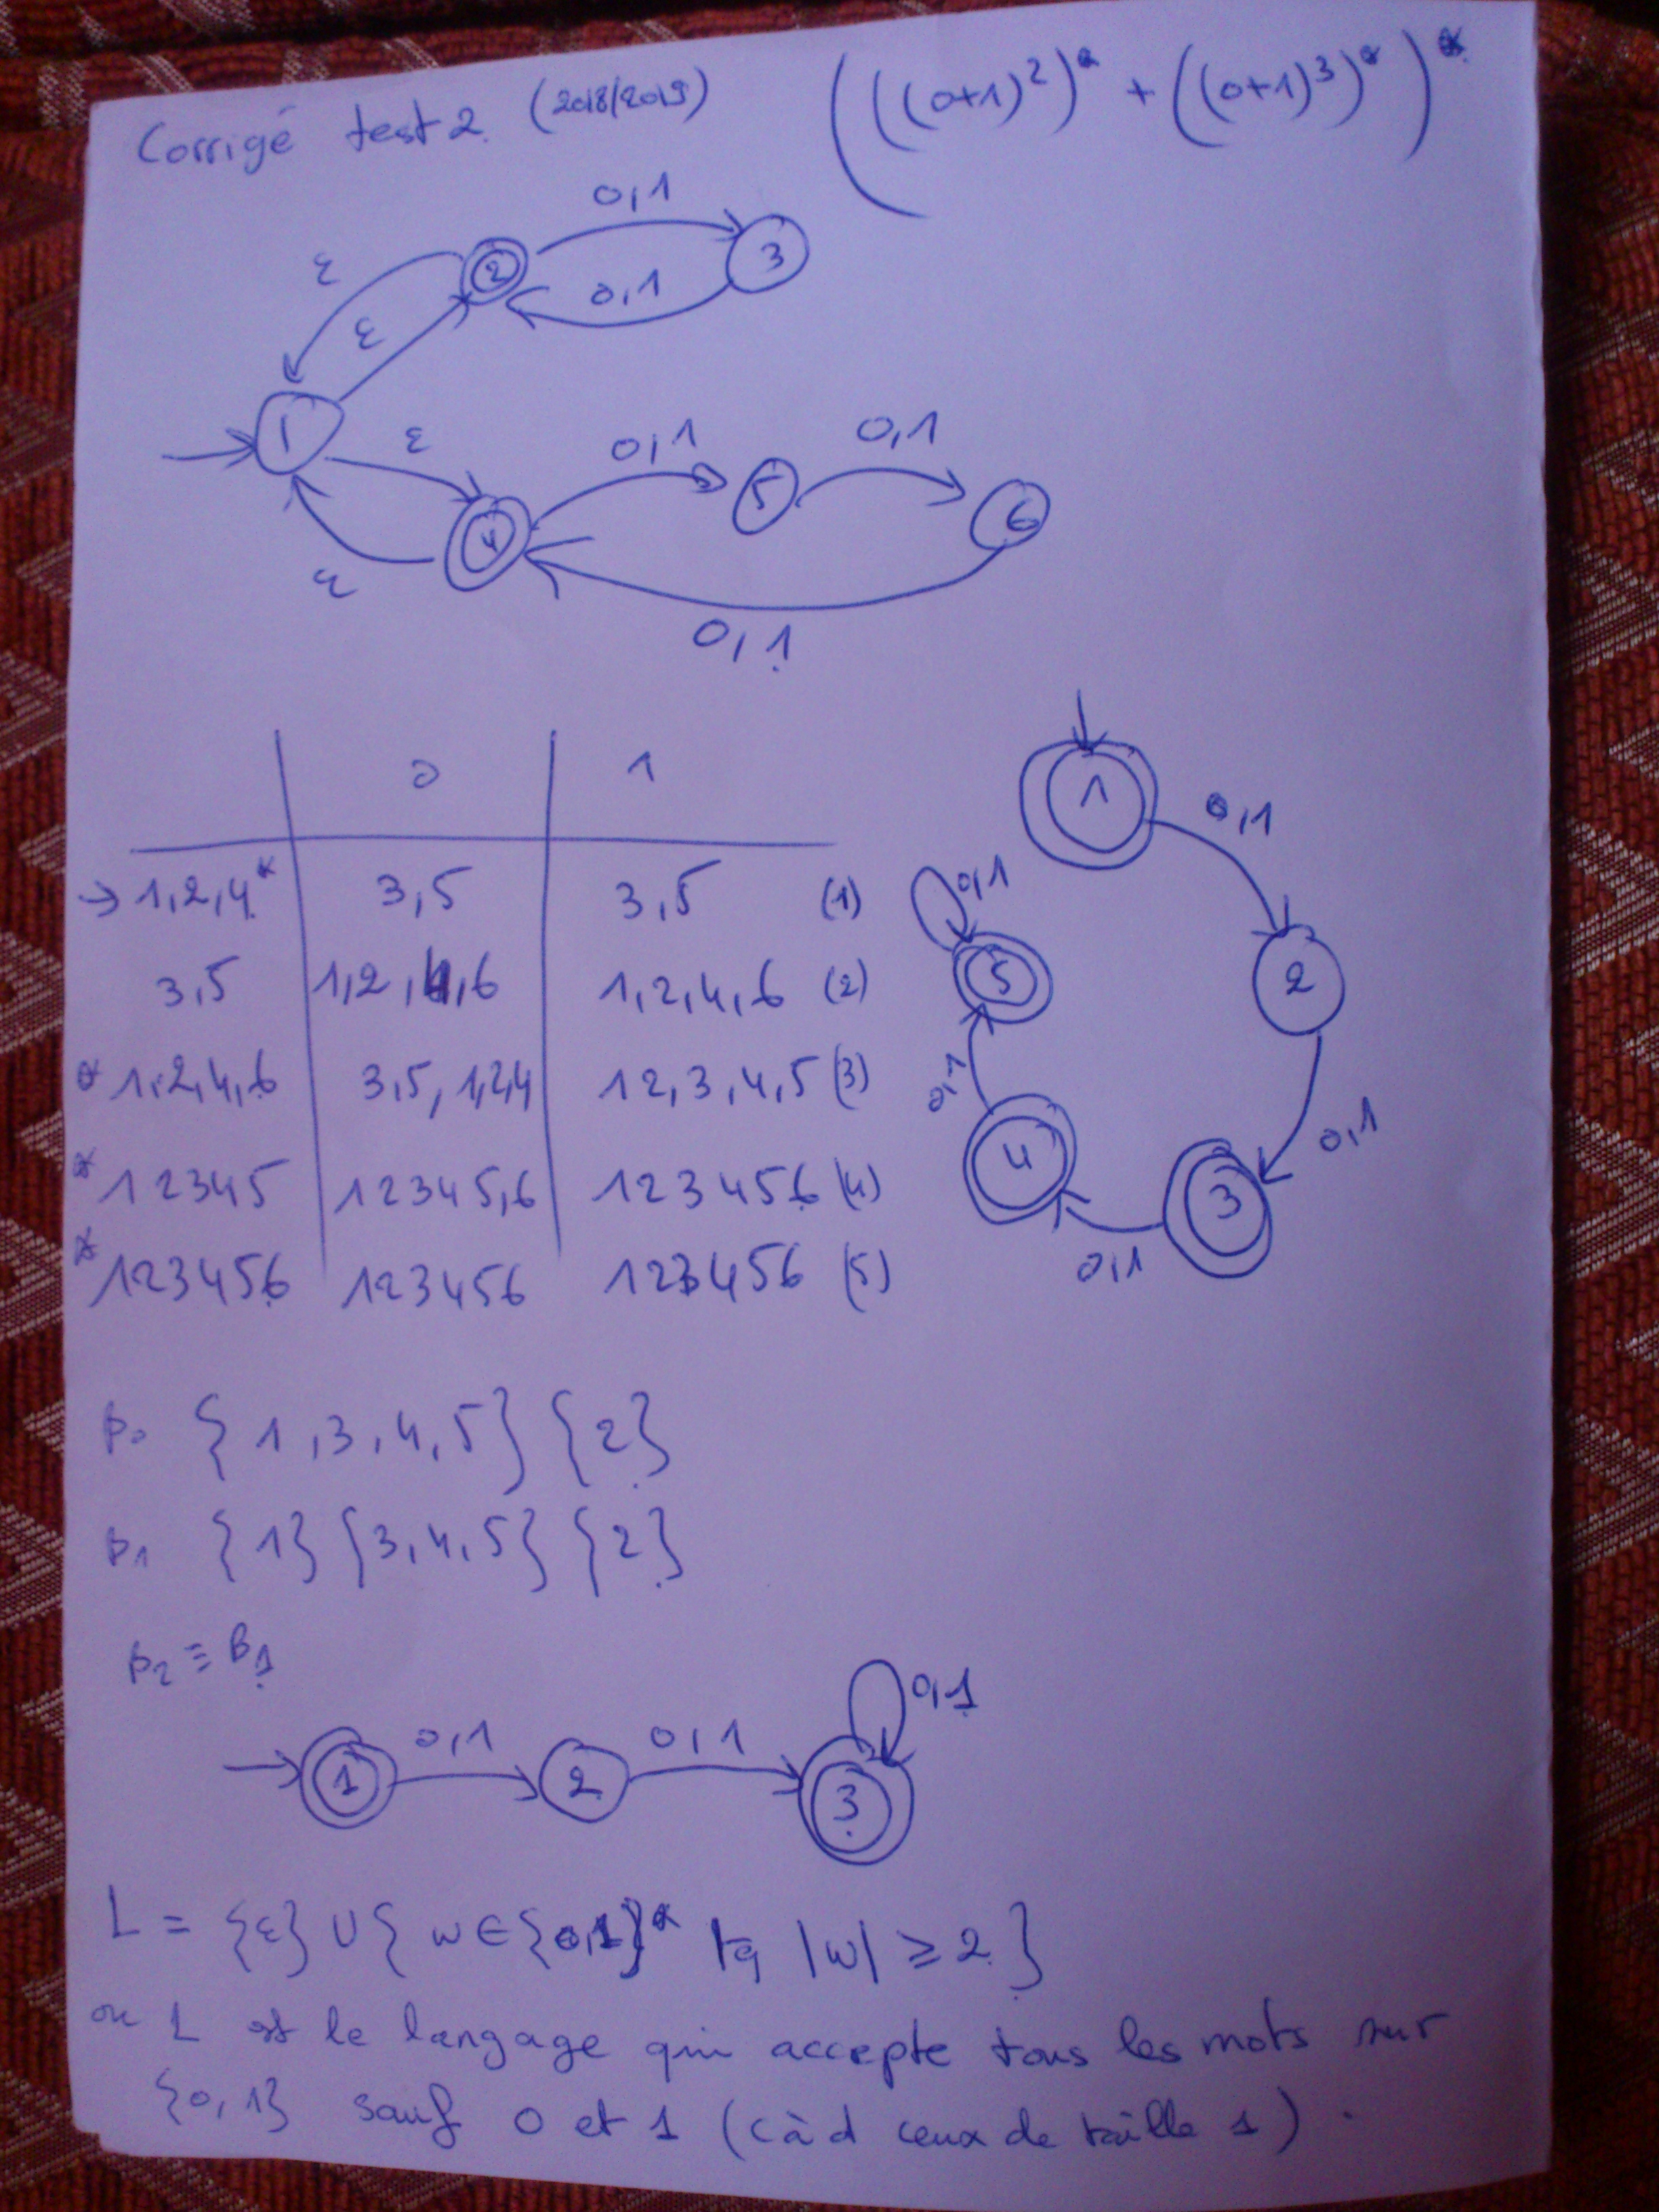 Corrigé test 2. (2018/2019) (((0+1)²)* + ((0+1)³)*)*
0,1
ε 2 0,1 3
ε
1 ε 0,1 0,1
4 5 6
ε
0,1
0 1
→ 1,2,4* 3,5 3,5 (1)
3,5 1,2,4,6 1,2,4,6 (2)
* 1,2,4,6 3,5,1,2,4 12,3,4,5 (3)
* 12345 12345,6 123456 (4)
* 123456 123456 123456 (5)
1 0,1
0,1
5 2
0,1
4 3 0,1
0,1
P0 {1,3,4,5} {2}
P1 {1} {3,4,5} {2}
P2 ≡ P1
0,1
1 0,1 2 0,1 3
L = {ε} ∪ { w ∈ {0,1}* tq |w| ≥ 2 }
ou L est le langage qui accepte tous les mots sur
{0,1} sauf 0 et 1 (càd ceux de taille 1).